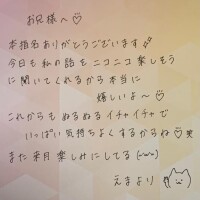 お兄様へ♡
本指名ありがとうございます
今日も私の話をニコニコ楽しそう
に聞いてくれるから本当に
嬉しいよ〜♡
これからもぬるぬるイチャイチャで
いっぱい気持ちよくするからね♡笑
また来月楽しみにしてる(˶ᵕ˶)
えまより